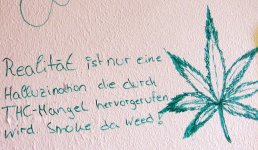 Realität ist nur eine
Halluzination die durch
THC-Mangel hervorgerufen
wird Smoke da Weed!